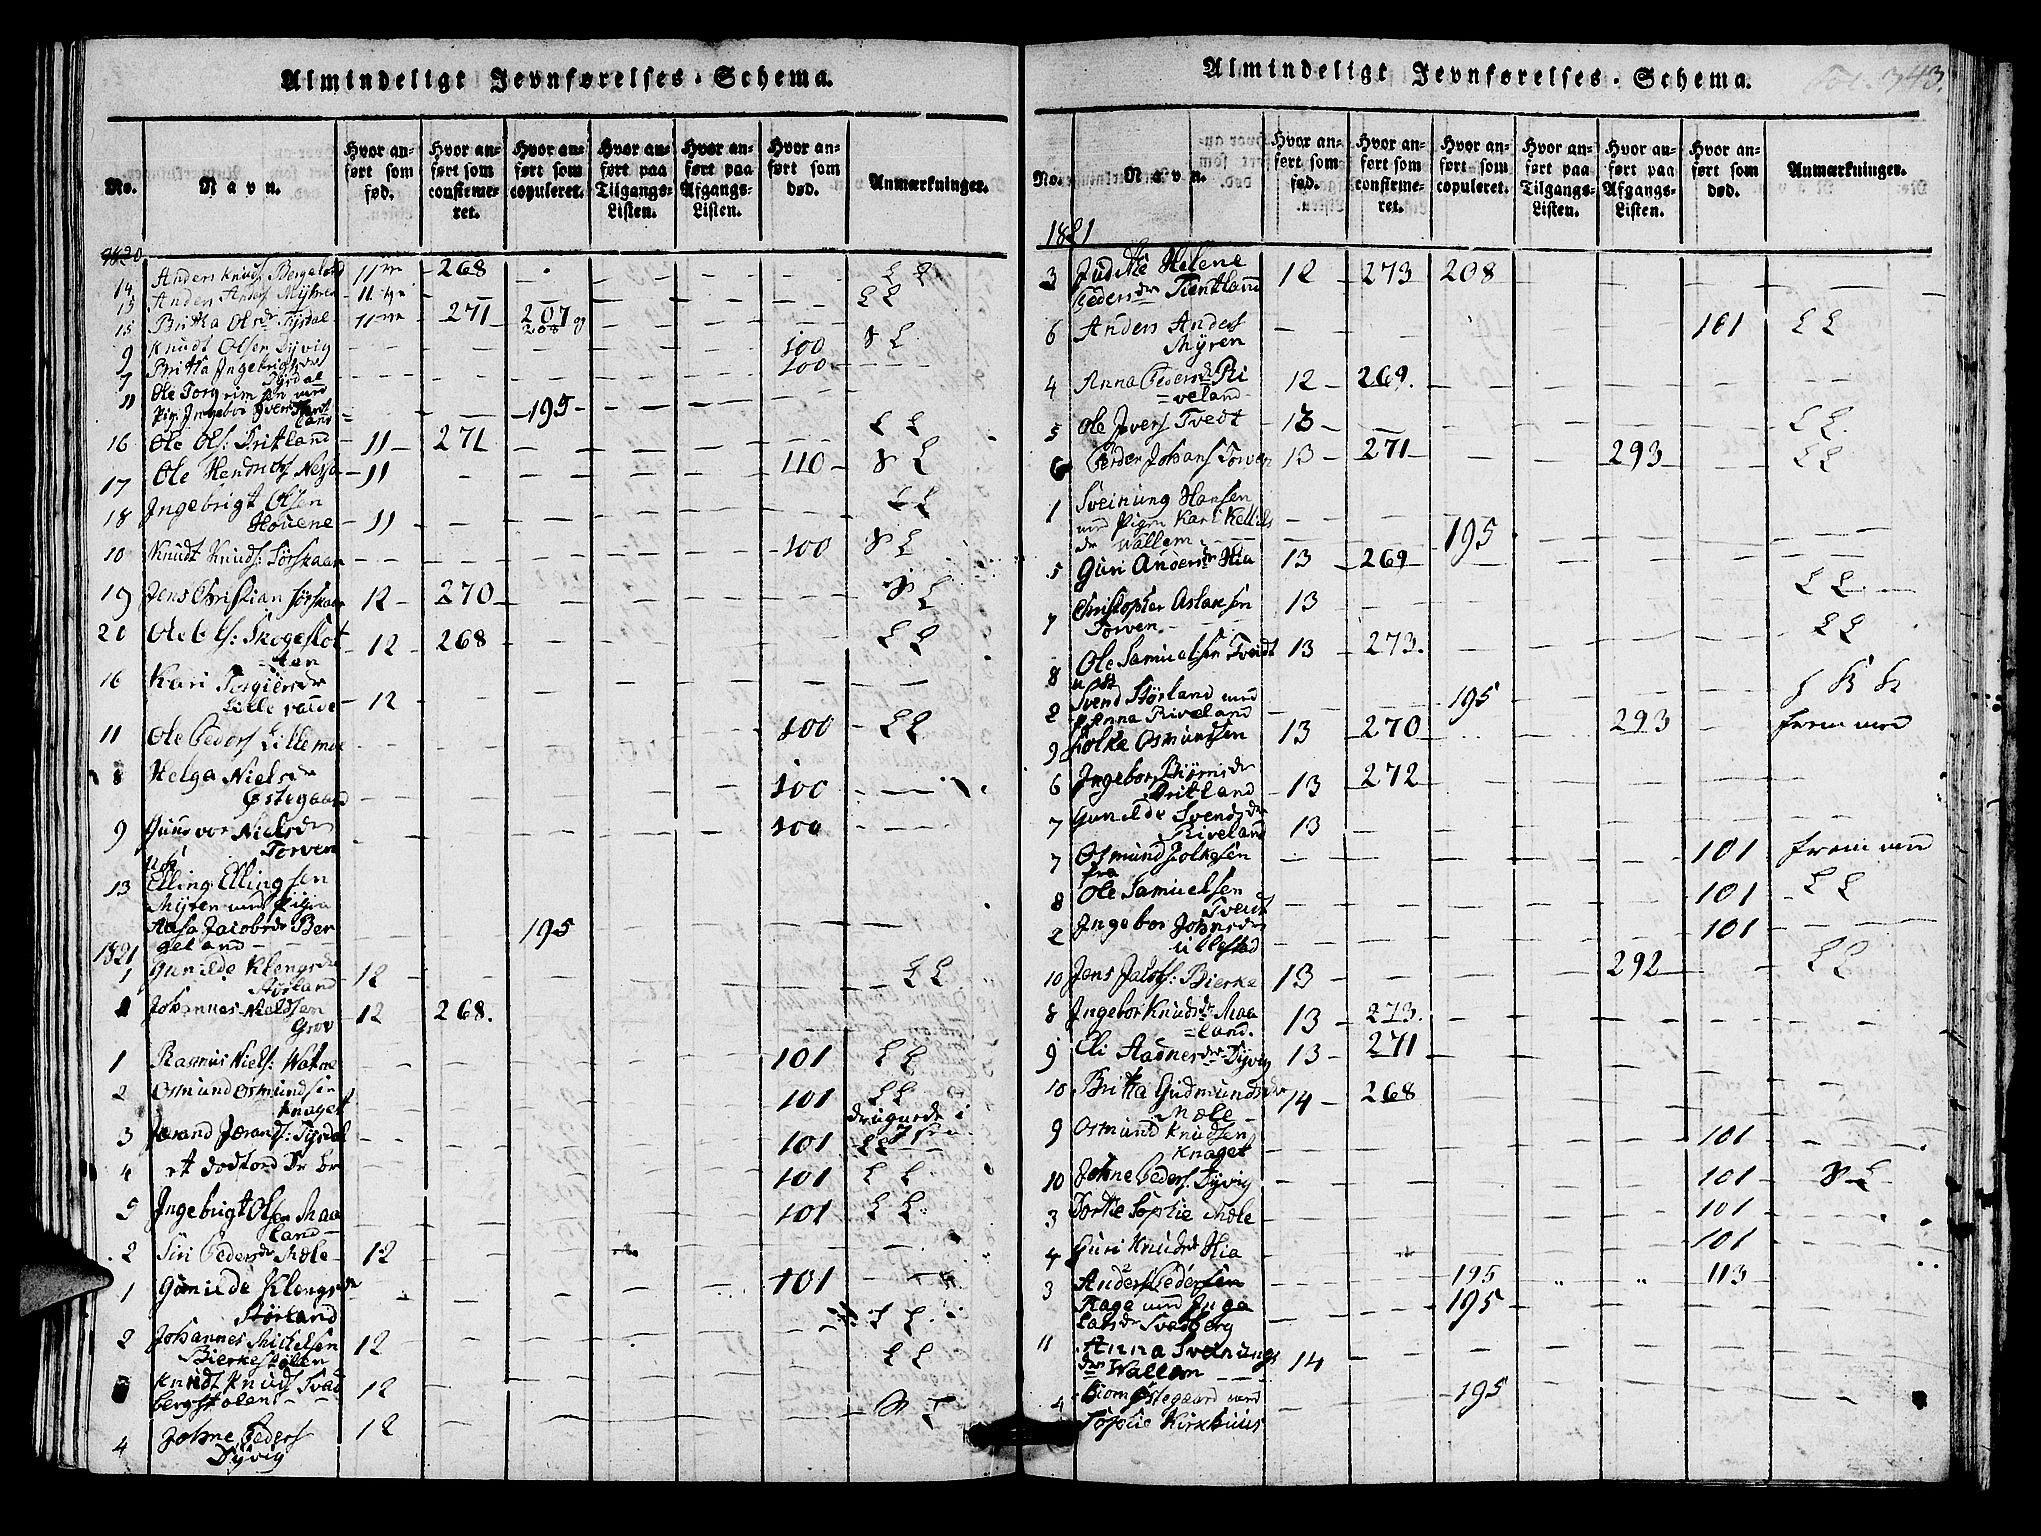 Almindeligt Jevnførelses-Schema.
No. Navn. Hvor anført som fød. Hvor anført som confirmeret. Hvor anført som copuleret. Hvor anført paa Tilgangs-Listen. Hvor anført paa Afgangs-Listen. Hvor anført som død. Anmærkninger.
1820
14 Anders Knuds Bergeland 11 268 L L
15 Anders Anders Myhren 11 L L
15 Britha Olsdr Tysdal 11 271 207 208
9 Knudt Olsen Dyvig 100 S L
7 Britha Ingebrigtsdr Tysdal 100
11 Ole Torgrimsen med
Pig: Ingebor Iversdr 195
16 Ole Ols: Tritland 11 271 L L
17 Ole Hendrichs Nessa 11 110 S L
18 Ingebrigt Olsen
Houene 11 L L
10 Knudt Knuds: Sørskaar 100 S L
19 Jens Christian Sørskaar 12 270 S L
20 Ole Ols: Skogeslot
ten 12 268 L L
16 Kari Torgiersdr
Lille 12
11 Ole Peders Lillemoe 100 L L
8 Helga Nielsdr
Østegaard 100
9 Gunvor Nielsdr
Torven 100
13 Elling Ellingsen
Myren med Pigen
Aasa Jacobsdr Ber
geland 195
1821
1 Gunilde Klengsdr
Størland 12 L L
1 Johannes Nielsen
Grov 12 268.
1 Rasmus Niels: Watne 101 L L
2 Osmund Osmundsen
Knaget 101 L L
3 Jørand Jørands: Tysdal 101 L L
4 et dødfød Dr Br 101 L L
5 Ingebrigt Olsen Maa
land 101 L L
2 Siri Pedersdr Mæle 12
1 Gunilde Klengsdr
Størland 101
2 Johannes Mickelsen
Bierkestølen 12 L L
Knudt Knuds Svad
bergstølen 12 L L
4 Johne Peders
Dyvig 12 S L
Almindeligt Jevnførelses-Schema.
Fol. 343.
No. Navn. Hvor anført som fød. Hvor anført som confirmeret. Hvor anført som copuleret. Hvor anført paa Tilgangs-Listen. Hvor anført paa Afgangs-Listen. Hvor anført som død. Anmærkninger.
1821
3 Judithe Helene
Pedersdr Tientland 12 273 208
6 Anders Anders
Myren 101 L L
4 Anna Pedersdr Ri
veland 12 269.
5 Ole Ivers Tvedt 13 L L
6 Peder Johans Torven 13 271 293 L L
1 Sveinung Hansen
med Pigen Kari Kettils
dr Wallem 195
5 Guri Andersdr Hia 13 269
7 Christopher Aslaksen
Torven 13 L L
8 Ole Samuelsen Tveidt 13 273. L L
2 Svend Størland med
Anna Riveland 195
9 Folke Osmundsen 13 270 293 frem med
6 Ingebor Biørnsdr
Tritland 13 272
7 Gunilde Svendsdr
Riveland 13
7 Osmund Folkesen 101 frem med
8 Ole Samuelsen
Tveidt 101 L L
2 Ingebor Johnsdr
Ullestad 101
10 Jens Jacobs: Bierke 13 292 L L
8 Ingebor Knudsdr Maa
land. 13 273.
9 Eli Aadnesdr Dyvig 13 271
10 Britha Gudmundsdr
Mæle 14 268
9 Osmund Knudsen
Knaget 101
10 Johne Peders: Dyvig 101 S L
3 Dorthe Sophie Mæle 101
4 Guri Knudsdr Hia 101
3 Anders Pedersen 195 „ „ 113
Rage med Inga
Larsdr Svadberg 195
11 Anna Sveinungs
dr Wallem 14
4 Biørn Østegaard med
Sophie Kirkhuus 195